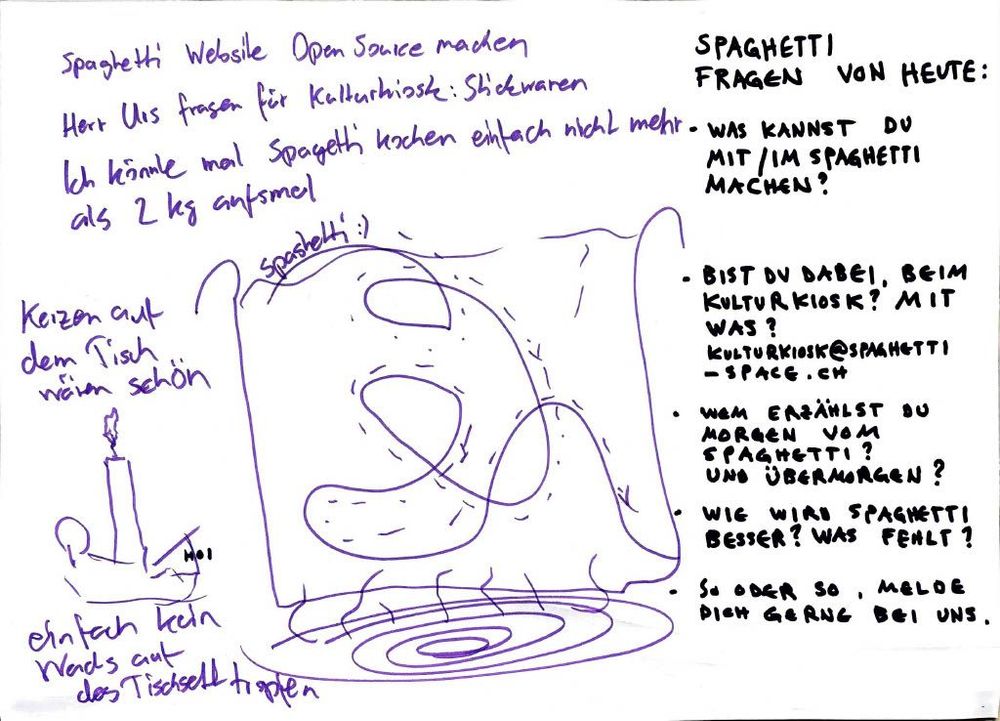 Spaghetti Website Open Source machen
Herr Urs fragen für Kulturkiosk: Stickwaren
Ich könnte mal Spagetti kochen einfach nicht mehr
als 2 kg aufsmal
Spaghetti :)
Kerzen auf
dem Tisch
wären schön
HOI
einfach kein
Wachs auf
das Tischsett tropfen
SPAGHETTI
FRAGEN VON HEUTE:
• WAS KANNST DU
MIT/IM SPAGHETTI
MACHEN?
• BIST DU DABEI, BEIM
KULTURKIOSK? MIT
WAS?
KULTURKIOSK@SPAGHETTI
-SPACE.CH
• WEM ERZÄHLST DU
MORGEN VOM
SPAGHETTI?
UND ÜBERMORGEN?
• WIE WIRD SPAGHETTI
BESSER? WAS FEHLT?
• SO ODER SO, MELDE
DICH GERNE BEI UNS.